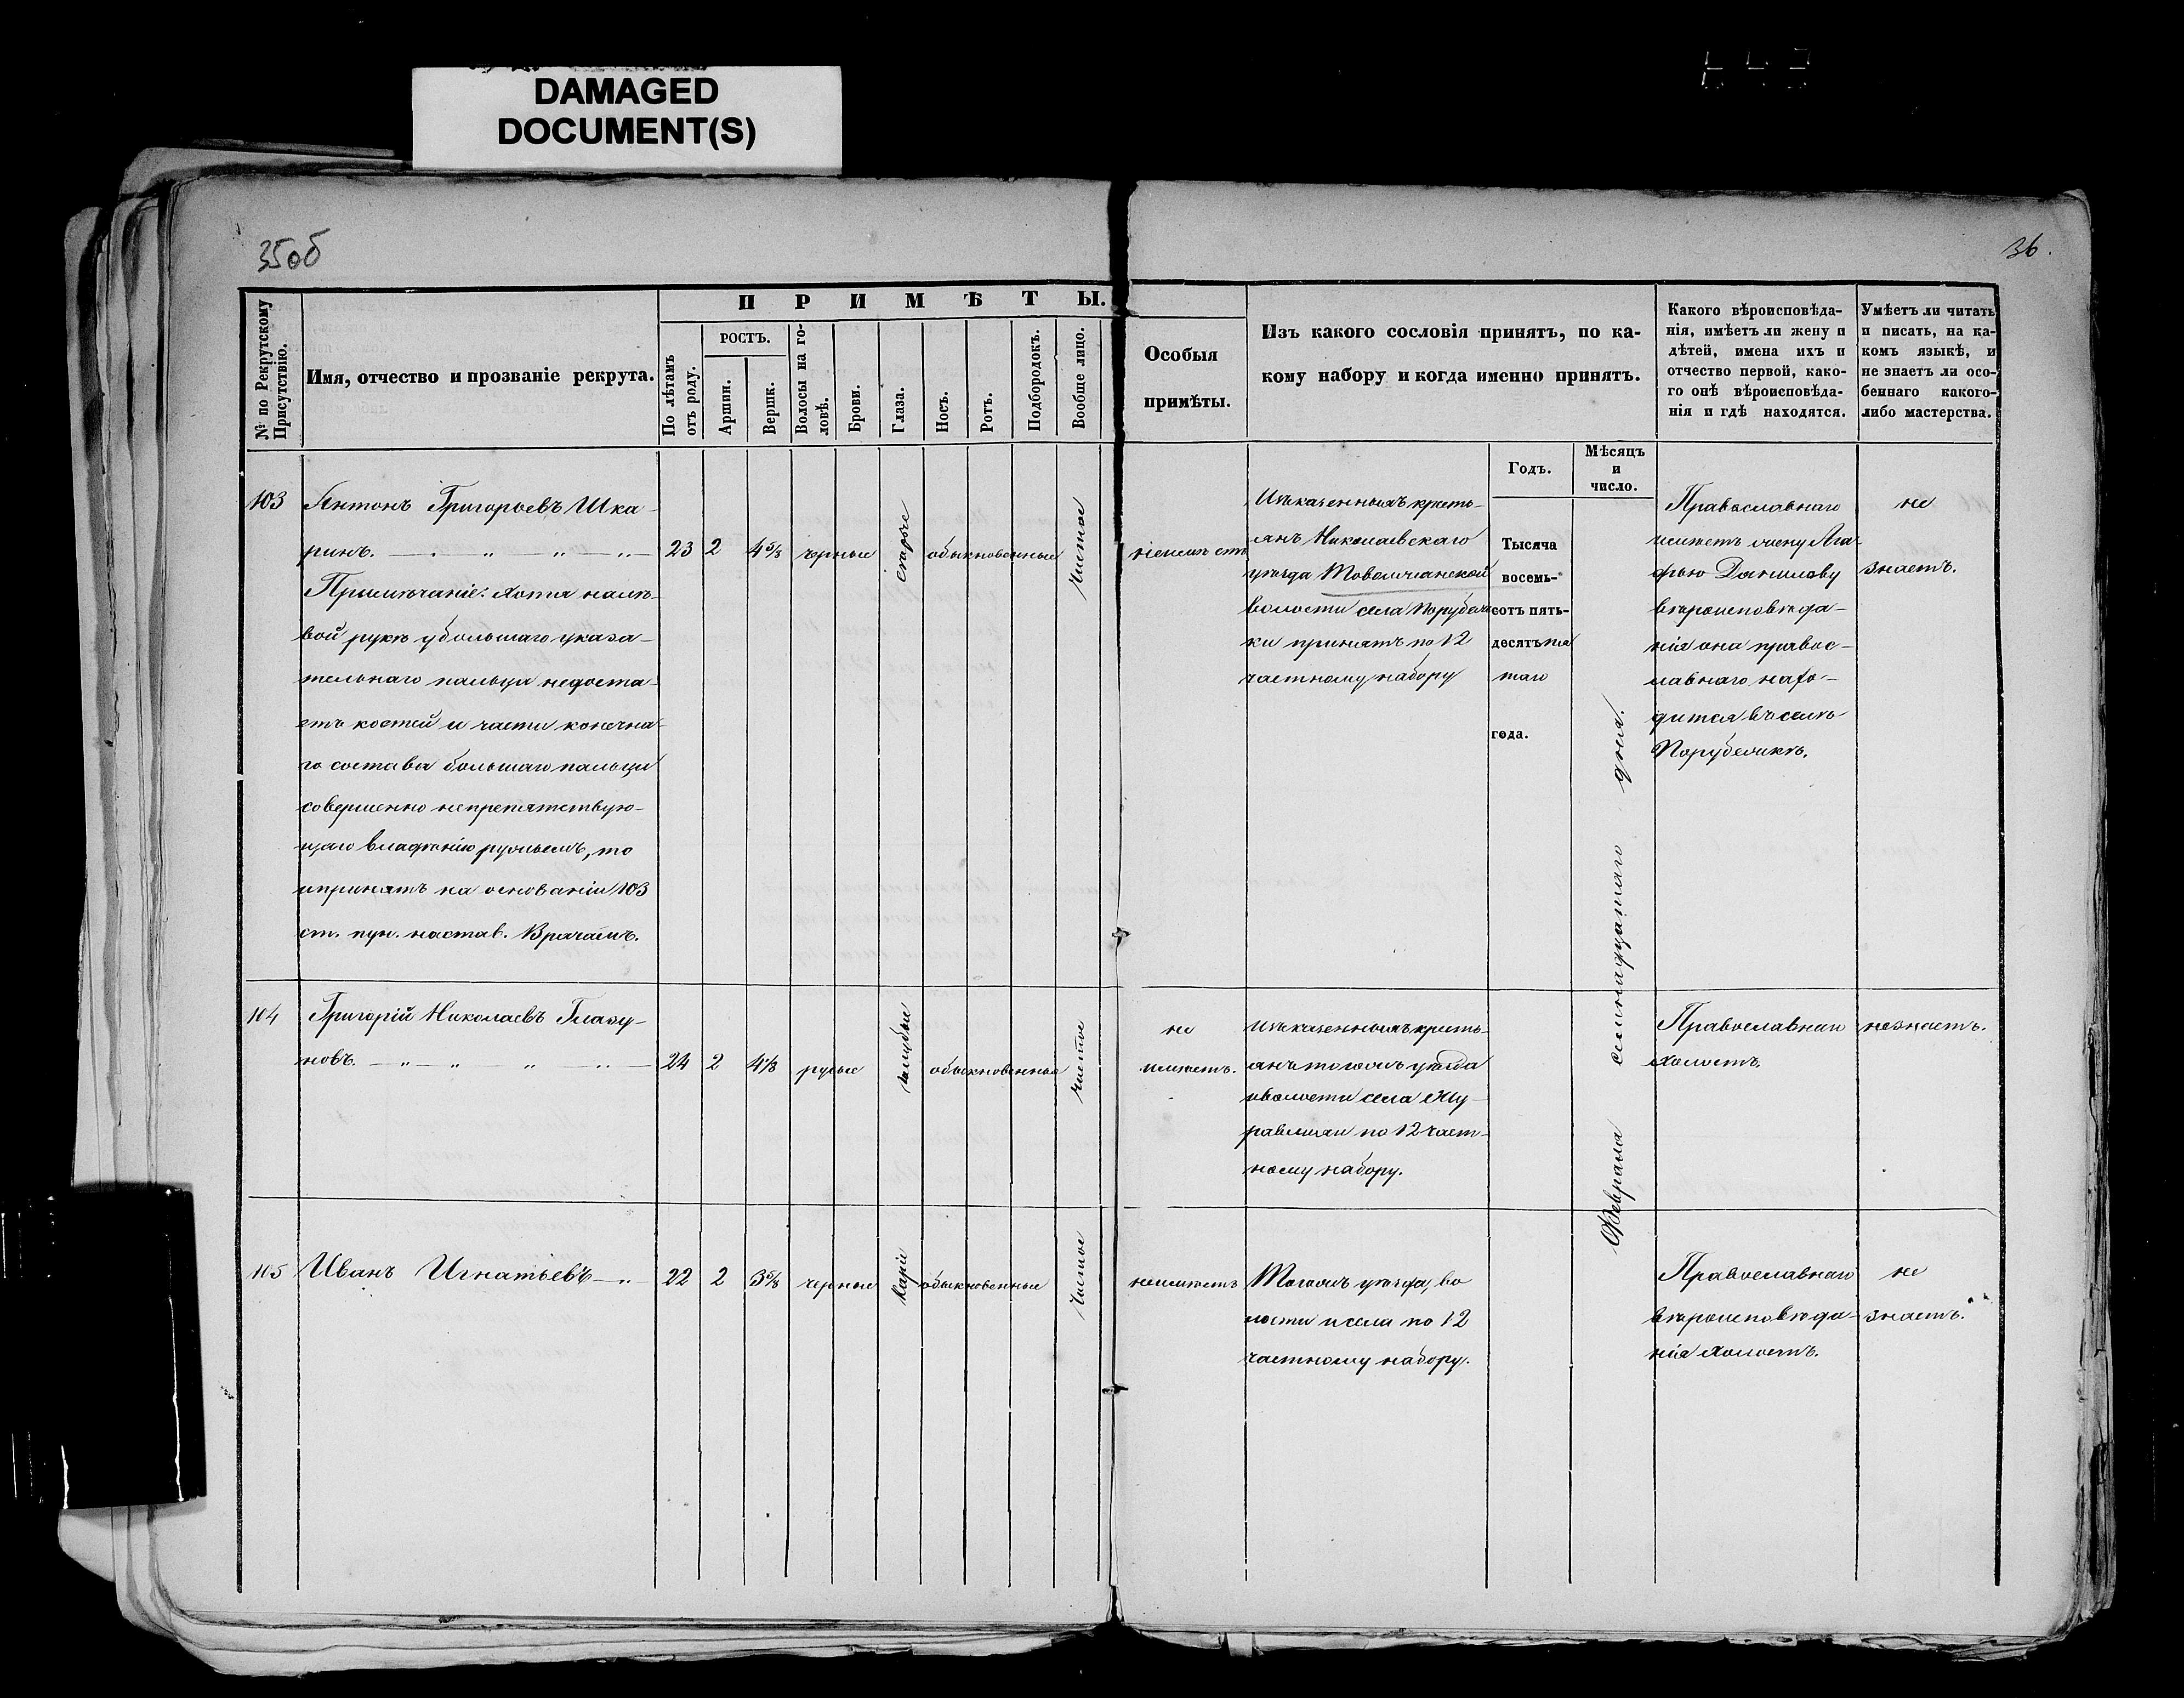 DAMAGED
DOCUMENT(S)
35об
36.
№ по Рекрутскому
Присутствію.
Имя, отчество и прозваніе рекрута.
ПРИМѢТЫ.
По лѣтамъ
отъ роду.
РОСТЪ.
Аршин.
Вершк.
Волосы на го-
ловѣ.
Брови.
Глаза.
Носъ.
Ротъ.
Подбородокъ.
Вообще лицо.
Особыя
примѣты.
Изъ какого сословія принятъ, по ка-
кому набору и когда именно принятъ.
Годъ.
Мѣсяцъ
и
число.
Какого вѣроисповѣда-
нія, имѣетъ ли жену и
дѣтей, имена ихъ и
отчество первой, како-
го онѣ вѣроисповѣда-
нія и гдѣ находятся.
Умѣетъ ли читать
и писать, на ка-
комъ языкѣ, и
не знаетъ ли осо-
беннаго какого-
либо мастерства.
103
Антонъ Григорьевъ Шка-
ринъ.
Примѣчаніе: Хотя налѣ-
вой рукѣ у большаго указа-
тельнаго пальца недоста-
етъ костей и части конечна-
го состава большаго пальца
совершенно непрепятствую-
щаго владѣнію ружьемъ, то
ипринятъ на основаніи 103
ст. пун. настав. Врачамъ.
23 2 4 5/8 черные
обыкновенные
Чистое
неимѣетъ
Изъказенныхъ кресть-
янъ Николаевскаго
уѣзда
волости села Порубеж
ки принятъ по 12
частному набору
Тысяча
восемь-
сотъ пять-
десятъ пя
таго
года.
Февраля семнадцатаго дня.
Православнаго
имѣетъ жену Ага-
фью Данилову
вѣроисповѣда-
нія она правос-
лавнаго нахо-
дится въ селѣ
Порубежкѣ.
не
знаетъ.
104
Григорій Николаевъ Глазу-
новъ.
24 2 4 1/8 русые
голубые
обыкновенные
чистое
не
имѣетъ.
Изъказенныхъ кресть-
янъ тогожъ уѣзда
иволости села Жу-
равлихи по 12 част-
ному набору.
Православнаго
Холостъ.
незнаетъ.
105
Иванъ Игнатьевъ
22 2 3 5/8 черные
Каріе
обыкновенные
Чистое
неимѣетъ
Тогожъ уѣзда, во
лости исела по 12
частному набору.
Православнаго
вѣроисповѣда-
нія Холостъ.
не
знаетъ.